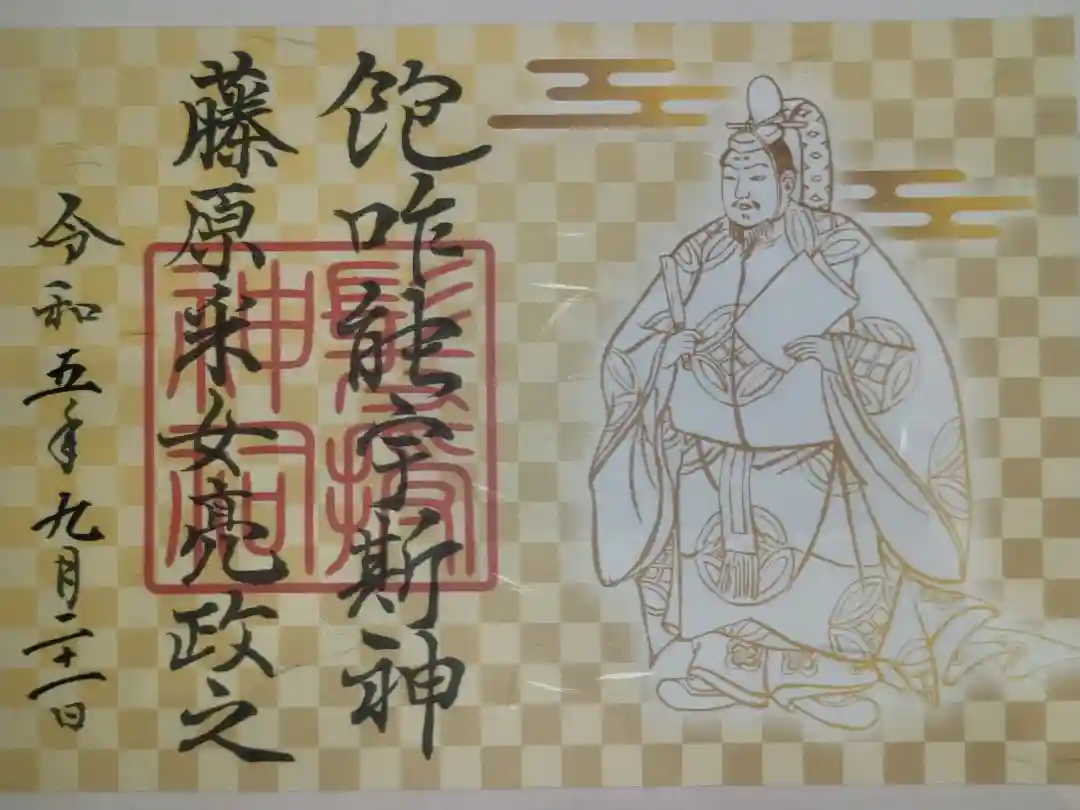 飽咋能宇斯神
藤原采女亮政之
令和五年九月二十一日
髪授神祠